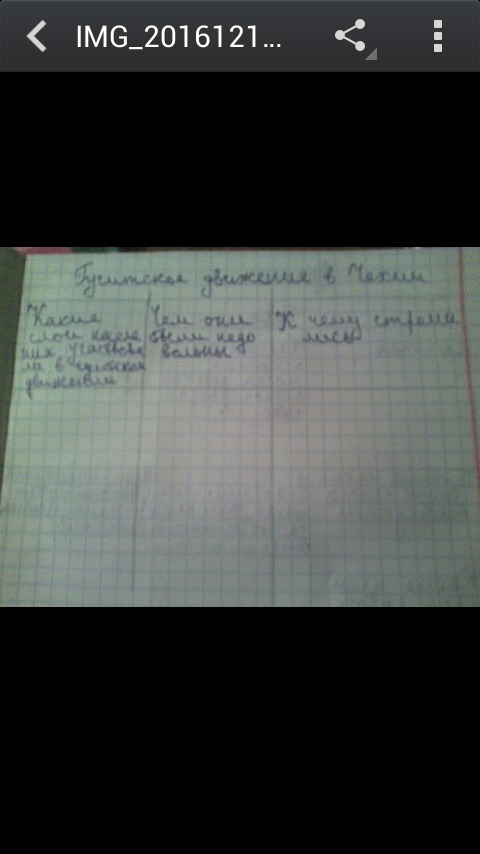 IMG_2016121...
Гуситское движение в Чехии
Какие
слои населе
ния участвова
ли в гуситском
движении
Чем они
были недо
вольны
К чему стреми
лись